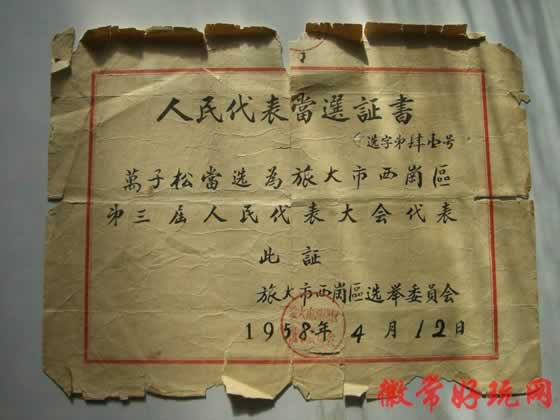 人民代表當選証書
(选字第肆中号
萬子松當选為旅大市西崗區
第三屆人民代表大会代表
此証
旅大市西崗區选举委員会
1958年4月12日
徽常好玩网